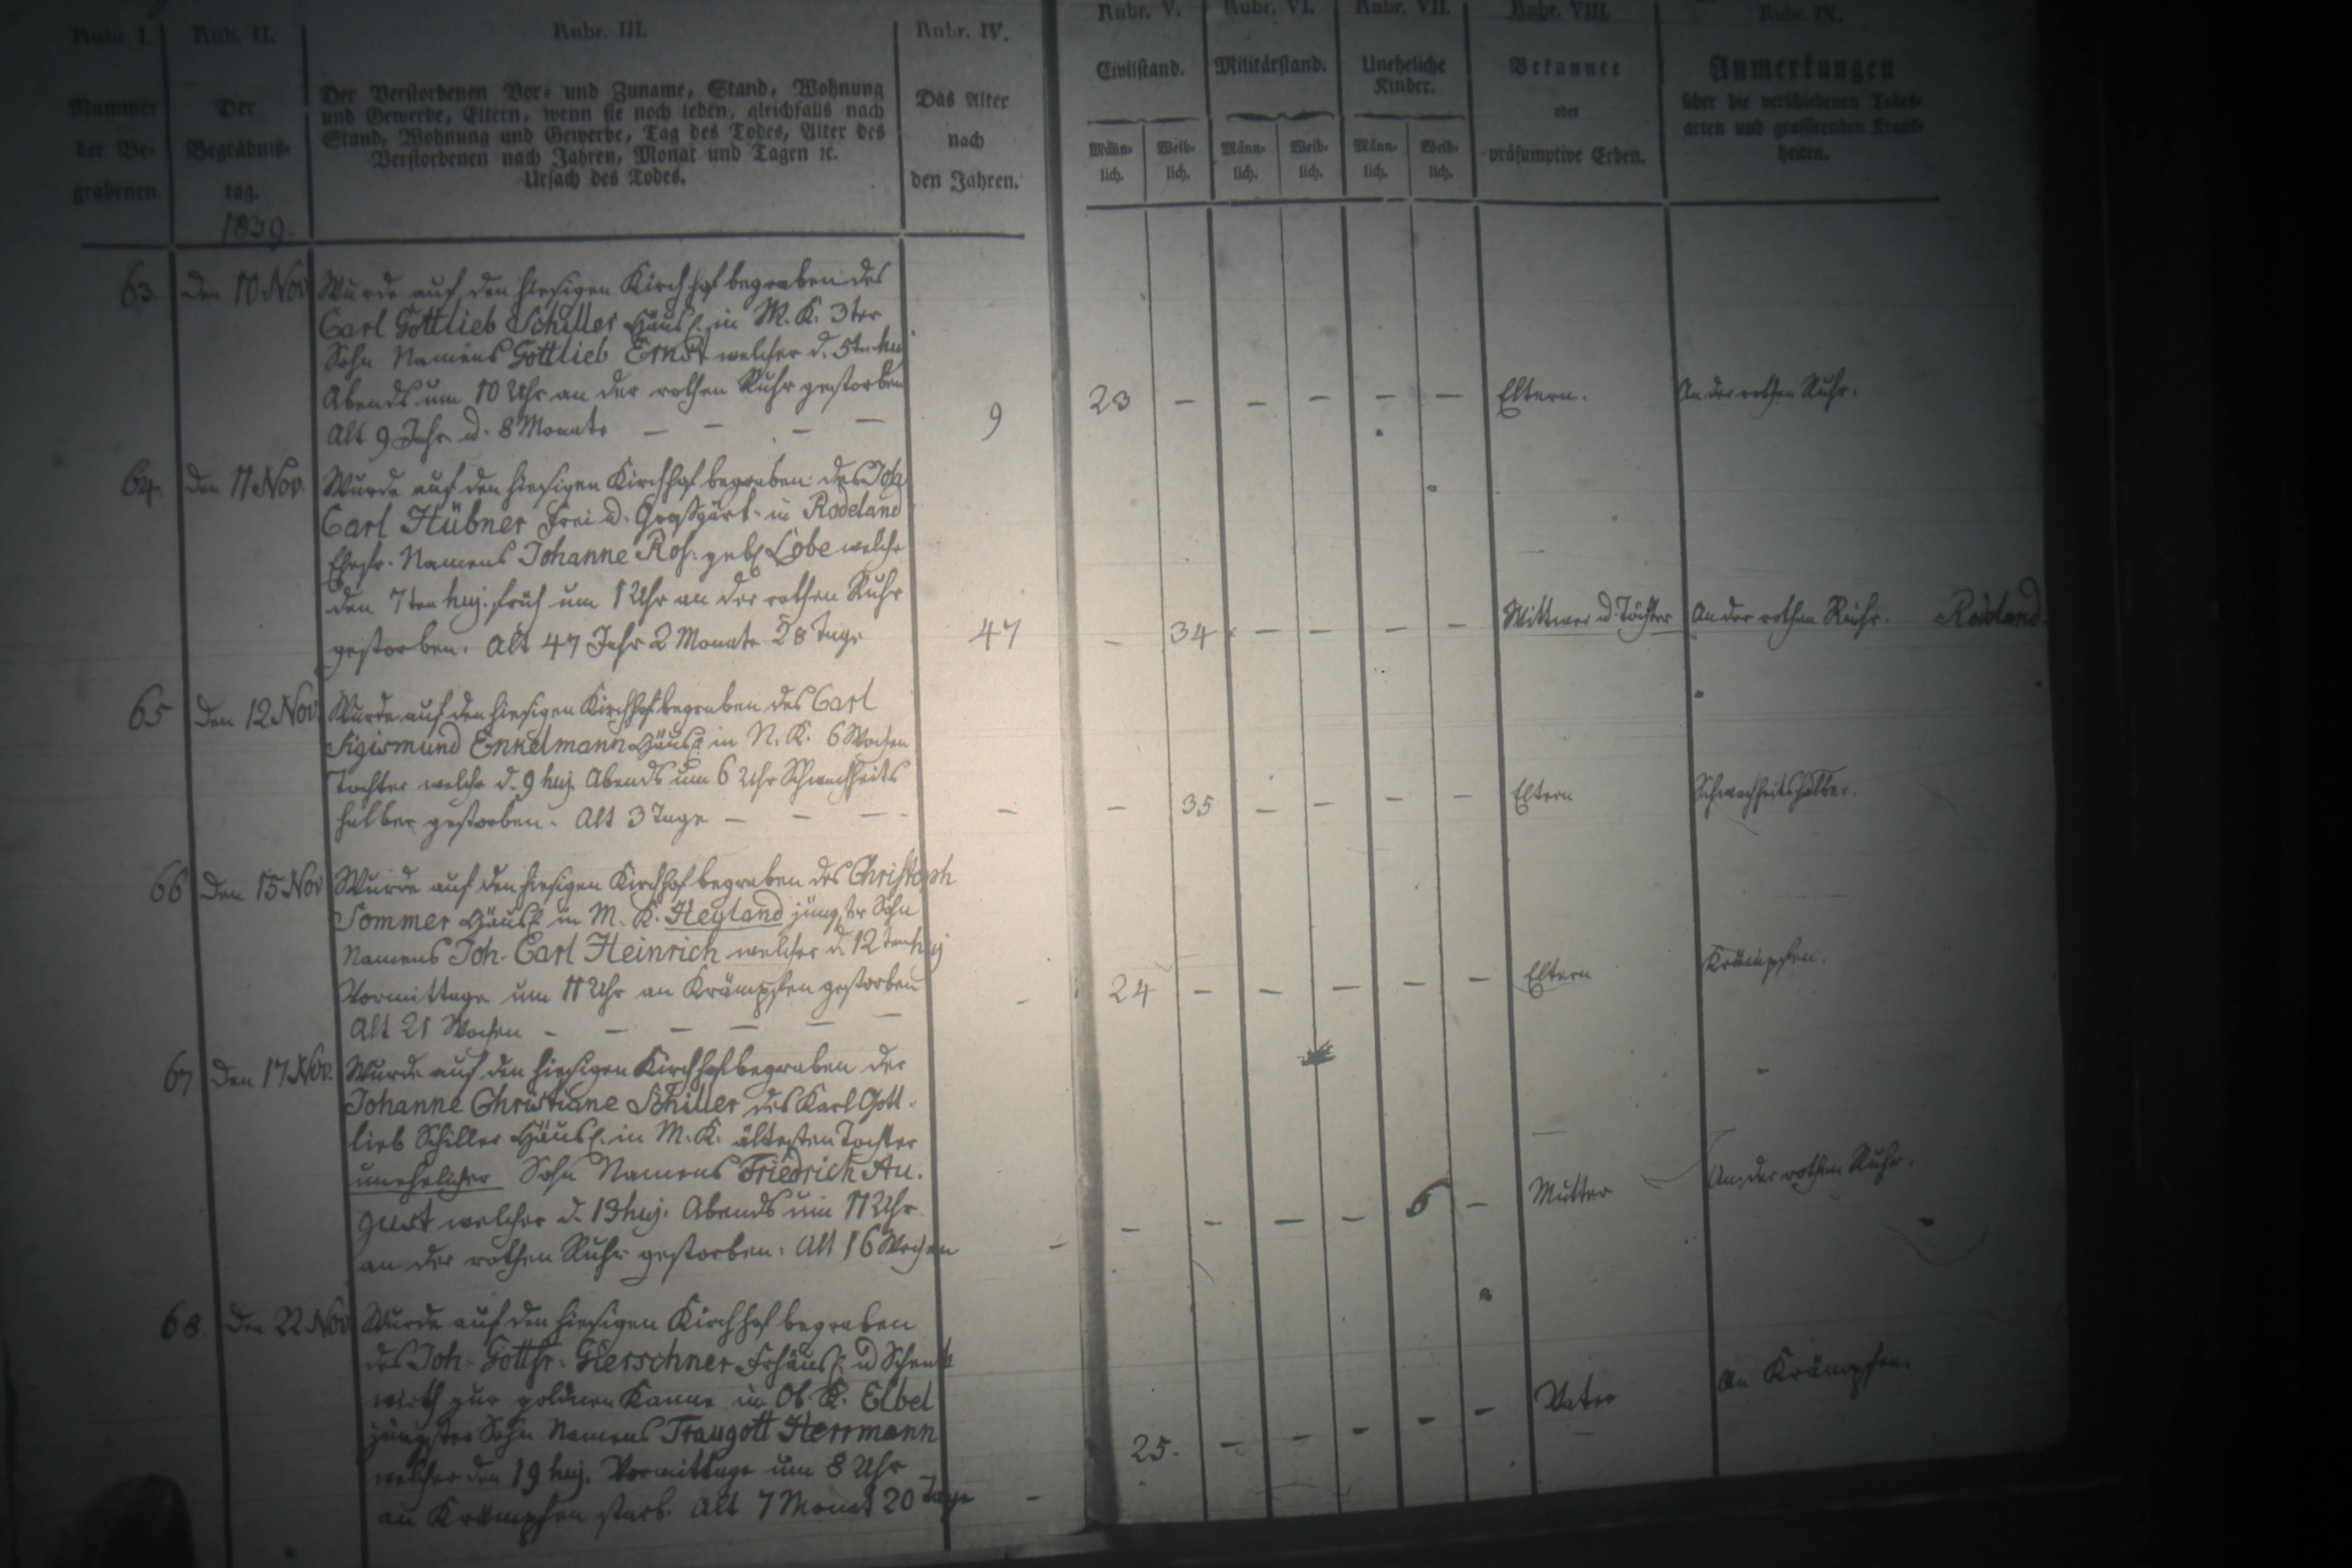 Rubr. I.
Nummer
der Be-
grabenen.
Rub. II.
Der
Begräbniß-
tag.
1839.
Rubr. III.
Der Verstorbenen Vor- und Zuname, Stand, Wohnung
und Gewerbe, Eltern, wenn sie noch leben, gleichfalls nach
Stand, Wohnung und Gewerbe, Tag des Todes, Alter des
Verstorbenen nach Jahren, Monat und Tagen ꝛc.
Ursach des Todes.
Rubr. IV.
Das Alter
nach
den Jahren.
Rubr. V.
Civilstand.
Männ-
lich.
Weib-
lich.
Rubr. VI.
Militärstand.
Männ-
lich.
Weib-
lich.
Rubr. VII.
Uneheliche
Kinder.
Männ-
lich.
Weib-
lich.
Rubr. VIII.
Bekannte
oder
präsumptive Erben.
Rubr. IX.
Anmerkungen
über die verschiedenen Todes-
arten und grassirenden Krank-
heiten.
63. den 10 Nov
Wurde auf den hiesigen Kirchhof begraben des
Carl Gottlieb Schiller Häusl. in M. K. 3ter
Sohn Namens Gottlieb Ernst welcher d. 5ten huj
Abends um 10 Uhr an der rothen Ruhr gestorben
Alt 9 Jahr u. 8 Monate — — — —
9 23 — — — — — Eltern. An der rothen Ruhr.
64. den 11 Nov.
Wurde auf den hiesigen Kirchhof begraben des Joh
Carl Hübner Frei u. Großgärt. in Rodeland
Ehefr. Namens Johanne Ros. geb. Lobe welche
den 7ten huj. früh um 1 Uhr an der rothen Ruhr
gestorben. Alt 47 Jahr 2 Monate 28 Tage
47 — 34 — — — — Wittwer u. Töchter An der rothen Ruhr. Rodeland.
65 den 12 Nov.
Wurde auf den hiesigen Kirchhof begraben des Carl
Sigismund Enkelmann Häusl. in N. K. 6 Wochen
Tochter welche d. 9 huj. Abends um 6 Uhr Schwachheits
halber gestorben. Alt 3 Tage — — — -
— — 35 — — — — Eltern Schwachheitshalber.
66 den 15 Nov
Wurde auf den hiesigen Kirchhof begraben des Christoph
Sommer Häusl. in M. K. Heyland jüngster Sohn
Namens Joh. Carl Heinrich welcher d. 12ten huj
Vormittags um 11 Uhr an Krämpfen gestorben
Alt 21 Wochen - — — — — —
- 24 — — — — — Eltern Krämpfen.
67 den 17 Nov.
Wurde auf den hiesigen Kirchhof begraben der
Johanne Christiane Schiller des Karl Gott-
lieb Schiller Häusl. in M. K. ältesten Tochter
unehelicher Sohn Namens Friedrich Au-
gust welcher d. 13 huj. Abends um 11 Uhr
an der rothen Ruhr gestorben. Alt 16 Wochen
— — — — — 6 — Mutter An der rothen Ruhr.
68 den 22 Nov
Wurde auf den hiesigen Kirchhof begraben
des Joh. Gottfr. Gierschner Frhäusl. u Schenk
wirth zur goldnen Kanne in Ob. K. Elbel
jüngster Sohn Namens Traugott Herrmann
welcher den 19 huj. Vormittags um 8 Uhr
an Krämpfen starb. Alt 7 Monat 20 Tage
— 25. — — — — — Vater An Krämpfen.